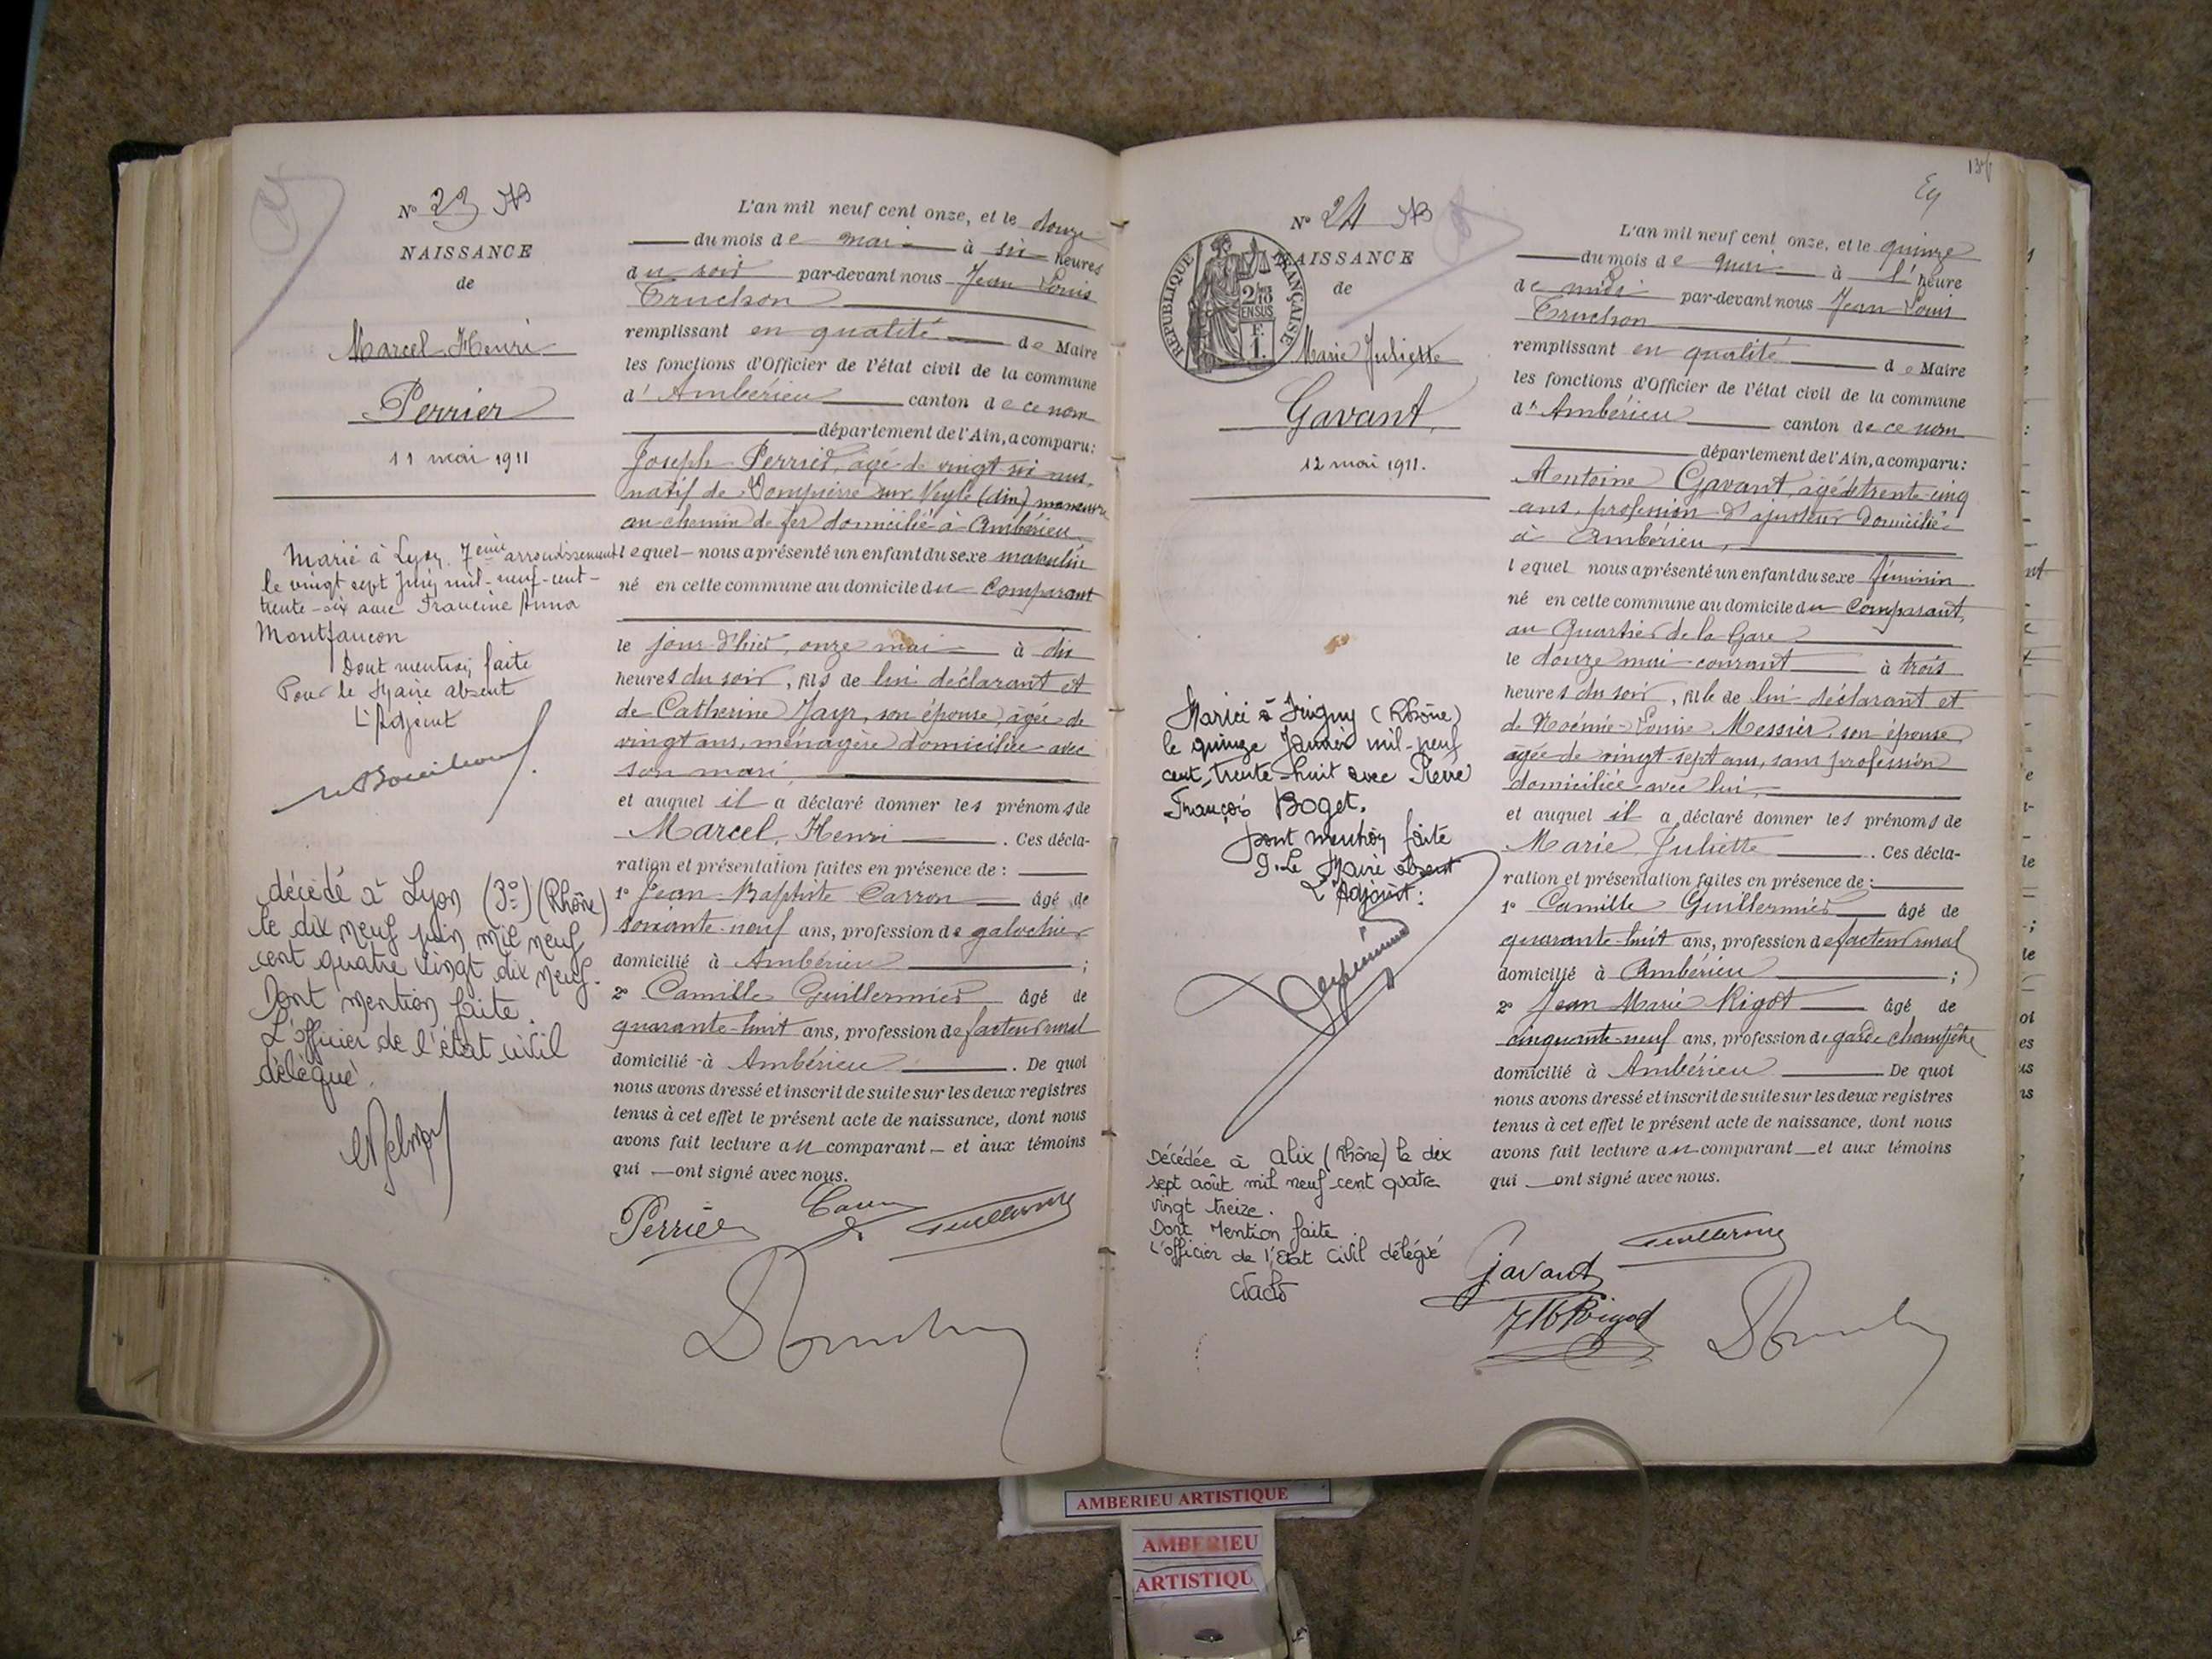 N° 23
NAISSANCE
de
Marcel Henri
Perrier
11 mai 1911
Marié à Lyon 7eme arrondissement
le vingt sept juin mil-neuf-cent-
trente-six avec Francine Anna
Montfaucon
Dont mention faite
Pour le Maire absent
L'Adjoint
décédé à Lyon (3°) (Rhône)
le dix neuf juin mil neuf
cent quatre vingt dix neuf.
Dont mention faite.
L'officier de l'état civil
délégué.
L'an mil neuf cent onze, et le douze
du mois de mai à six heures
du soir par-devant nous Jean Louis
Truchon
remplissant en qualité de Maire
les fonctions d'Officier de l'état civil de la commune
d'Ambérieu canton de ce nom
département de l'Ain, a comparu:
Joseph Perrier, âgé de vingt six ans,
natif de Vonnas sur Veyle (Ain) manœuvre
au chemin de fer domicilié à Ambérieu
lequel nous a présenté un enfant du sexe masculin
né en cette commune au domicile du Comparant
le jour d'hier, onze mai à dix
heures du soir, fils de lui déclarant et
de Catherine Jayr, son épouse, âgée de
vingt ans, ménagère domiciliée avec
son mari,
et auquel il a déclaré donner les prénoms de
Marcel, Henri. Ces décla-
ration et présentation faites en présence de :
1° Jean-Baptiste Carron âgé de
soixante-neuf ans, profession de galochier
domicilié à Ambérieu ;
2° Camille Guillermier âgé de
quarante-huit ans, profession de facteur rural
domicilié à Ambérieu. De quoi
nous avons dressé et inscrit de suite sur les deux registres
tenus à cet effet le présent acte de naissance, dont nous
avons fait lecture au comparant et aux témoins
qui ont signé avec nous.
Perrier
N° 24
NAISSANCE
de
REPUBLIQUE FRANÇAISE
2/10 EN SUS
F. 1.
Marie Juliette
Gavant
12 mai 1911.
Mariée à Irigny (Rhône)
le quinze Janvier mil-neuf
cent-trente-huit avec Pierre
François Boget.
Dont mention faite
P. Le Maire absent
L'Adjoint :
Décédée à Alix (Rhône) le dix
sept août mil neuf cent quatre
vingt treize.
Dont Mention faite.
L'officier de l'Etat Civil délégué
L'an mil neuf cent onze, et le quinze
du mois de mai à l'heure
de midi par-devant nous Jean Louis
Truchon
remplissant en qualité de Maire
les fonctions d'Officier de l'état civil de la commune
d'Ambérieu canton de ce nom
département de l'Ain, a comparu:
Antoine Gavant, âgé de trente-cinq
ans, profession d'ajusteur domicilié
à Ambérieu,
lequel nous a présenté un enfant du sexe féminin
né en cette commune au domicile du Comparant,
au Quartier de la Gare
le douze mai courant à trois
heures du soir, fille de lui déclarant et
de Noémie-Louise Messier, son épouse,
âgée de vingt-sept ans, sans profession
domiciliée avec lui,
et auquel il a déclaré donner les prénoms de
Marie Juliette. Ces décla-
ration et présentation faites en présence de :
1° Camille Guillermier âgé de
quarante-huit ans, profession de facteur rural
domicilié à Ambérieu ;
2° Jean Marie Rigot âgé de
cinquante-neuf ans, profession de garde champêtre
domicilié à Ambérieu De quoi
nous avons dressé et inscrit de suite sur les deux registres
tenus à cet effet le présent acte de naissance, dont nous
avons fait lecture au comparant et aux témoins
qui ont signé avec nous.
Gavant
AMBERIEU ARTISTIQUE
AMBERIEU
ARTISTIQU